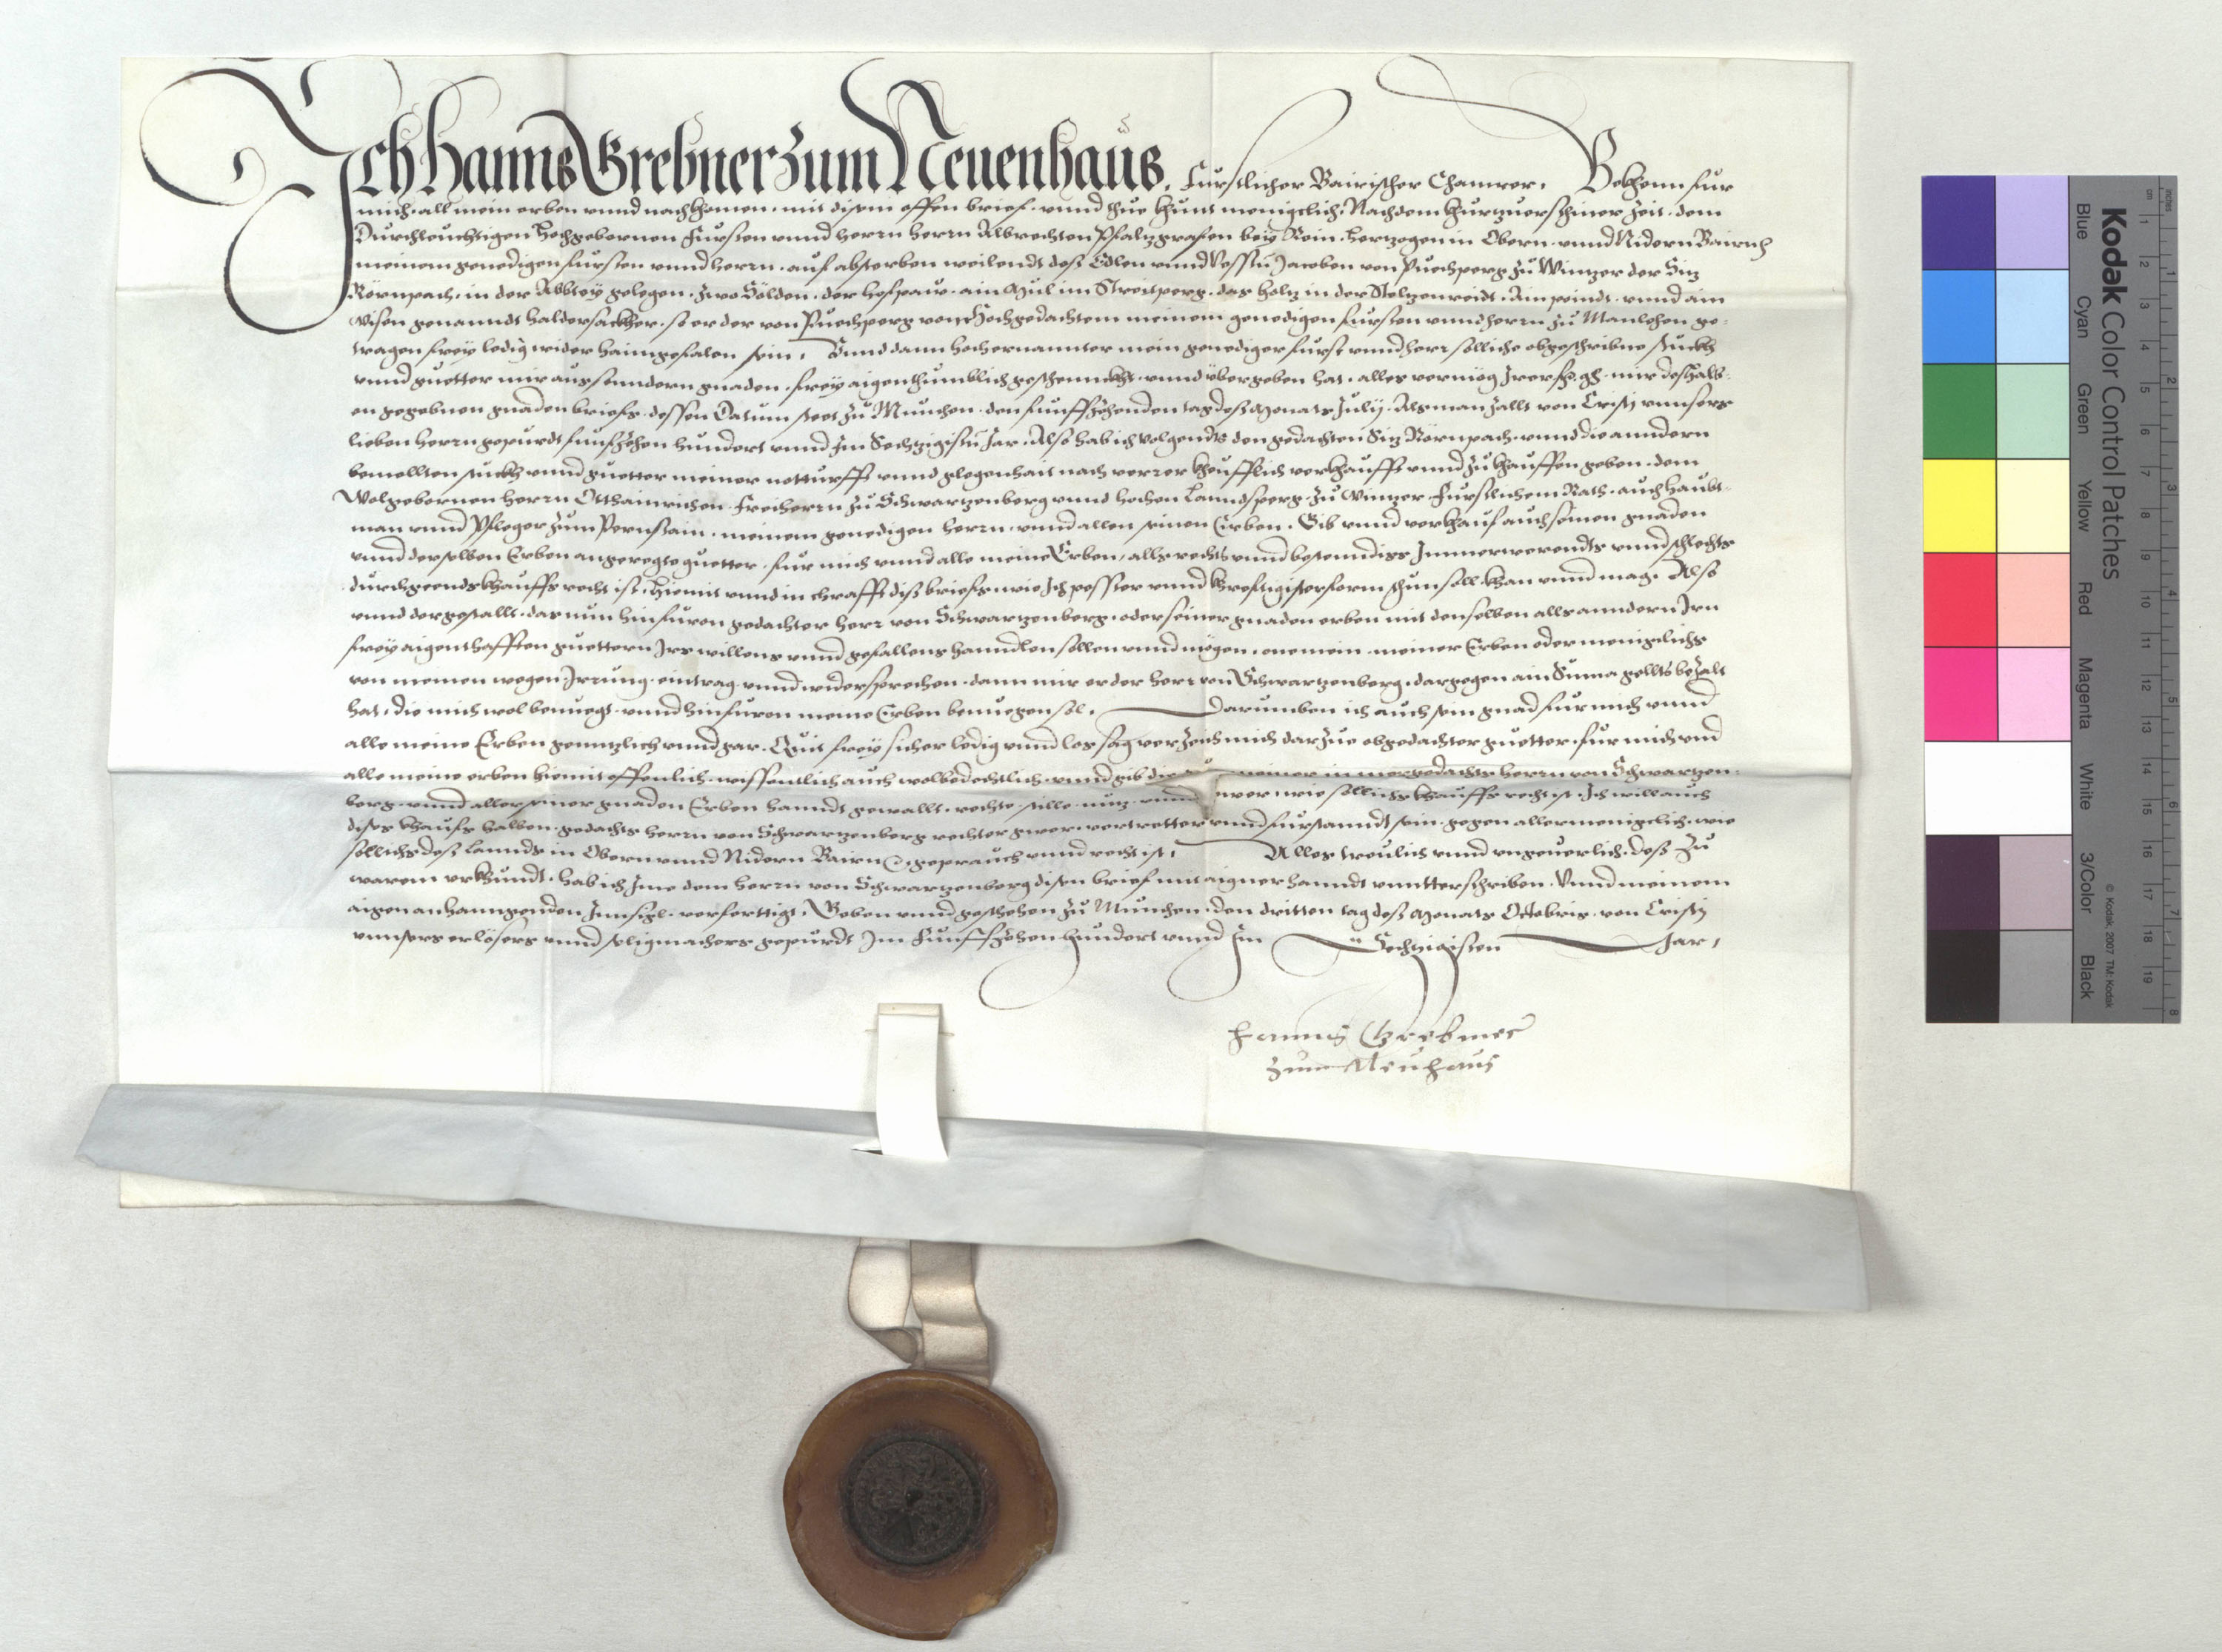 Ich Hanns Grebner zum Neuenhaus, Furstlicher Bairischer Chamrer, Bekhenn fur
mich, all mein erben vnnd nachkhomen, mit disem offen brief, vnnd thue khunt menigclich, Nachdem khurtzuerschiner Zeit, dem
Durchleuchtigen Hochgebornen Fursten vnnd herrn herrn Albrechten Pfaltzgrafen bey Rein, Hertzogen in Obern vnnd Nidern Bairn
meinem genedigen fursten vnnd herrn, auf absterben weilendt deß Edlen vnnd Vessten Jacoben von Puechperg zu Wintzer der Sitz
Rörnpach, in der Abbtey gelegen, zwo Sölden, der hofpaw, ain Mul im Streitperg, das holtz in der Steltzenreidt, Ain peindt, vnnd ain
wisen genanndt haldersackher, so er der von Puechperg von Hochgedachtem meinem genedigen fursten vnnd herrn zu Manlehen ge-
tragen frey ledig wider haimgefalen sein, Vnnd dann hochernannter mein genediger furst vnnd herr solliche obgeschribne stuckh
vnnd guetter mir aus sonndern gnaden, frey aigenthumblich geschennckht, vnnd vbergeben hat, alles vermög Irer fr. gn. mir deshalb-
en gegebnen gnadenbriefs, dessen Datum steet zu Munchen, den funffzehenden tag deß Monats Julij, Als man zallt von Cristj vnnsers
lieben herrn gepurdt funfzehen hundert vnnd Im Sechtzigisten Jar, Also hab ich volgendts den gedachten Sitz Rörnpach, vnnd die anndern
bemellten stuckh vnnd guetter meiner notturfft vnnd glegenhait nach verrer kheufflich verkhaufft vnnd zu khauffen geben, dem
Wolgebornen herrn Otthainrichen Freiherrn zu Schwartzenberg vnnd hohen Lanndsperg, zu Wintzer, Furstlichem Rath, auch haubt-
man vnnd Pfleger zum Pernstain, meinem genedigen herrn, vnnd allen seinen Erben, Gib vnnd verkhauf auch seinen gnaden
vnnd derselben Erben angeregte guetter, fur mich vnnd alle meine Erben, alls rechts vnnd bestenndigs Immerwerendts vnnd schlechts
durchgeends khauffs recht ist, Hiemit vnnd in chrafft diß briefs, wie Ich pesster vnnd khrefftigister form thun soll, khan vnnd mag, Also
vnnd dergestallt, das nun hinfuron gedachter herr von Schwartzenberg, oder seiner gnaden erben mit denselben alls anndern Irn
frey aigenthafften guettern Irs willens vnnd gefallens hanndlen sollen vnnd mögen, one mein, meiner Erben oder menigclichs
von meinen wegen Irrung, eintrag, vnnd widersprechen, dann mir er der herr von Schwartzenberg, dargegen ain Suma gellts bezalt
hat, die mich wol benuegt, vnnd hinfuron meine Erben benuegen sol, Darumben ich auch sein gnad fur mich vnnd
alle meine Erben genntzlich vnnd gar, Quit frey sicher ledig vnnd los sag, verzeich mich darzue obgedachter guetter, fur mich vnd
alle meine erben hiemit offenlich, wissentlich auch wolbedechtlich, vnnd gib die meiner in mergedachts herrn von Schwartzen-
berg, vnnd aller seiner gnaden Erben hanndt gewallt, rechte stille nutz vnnd gwer, wie sollichs khauffs recht ist, Ich will auch
dises khaufs halben, gedachts herrn von Schwartzenberg rechter gwer, vertretter vnnd furstanndt sein, gegen allermenigclich, wie
sollichs deß Lannds in Obern vnnd Nidern Bairn geprauch vnnd recht ist, Alles treulich vnnd vngeuerlich, deß zu
warem vrkhundt, hab ich Ime dem herrn von Schwartzenberg disen brief mit aigner hanndt vnntterschriben, Vnnd meinem
aigen anhanngenden Innsigl, verferttigt, Geben vnnd geschehen zu Munchen, den dritten tag deß Monats Octobris, von Cristj
vnnsers erlösers vnnd seligmachers gepurdt Im Funffzehen hundert vnnd Im Sechtzigisten Jar,
Hanns Grebmer
zum Neuhaus
Kodak Color Control Patches
Blue Cyan Green Yellow Red Magenta White 3/Color Black
© Kodak, 2007 TM: Kodak
cm 1 2 3 4 5 6 7 8 9 10 11 12 13 14 15 16 17 18 19
inches 1 2 3 4 5 6 7 8